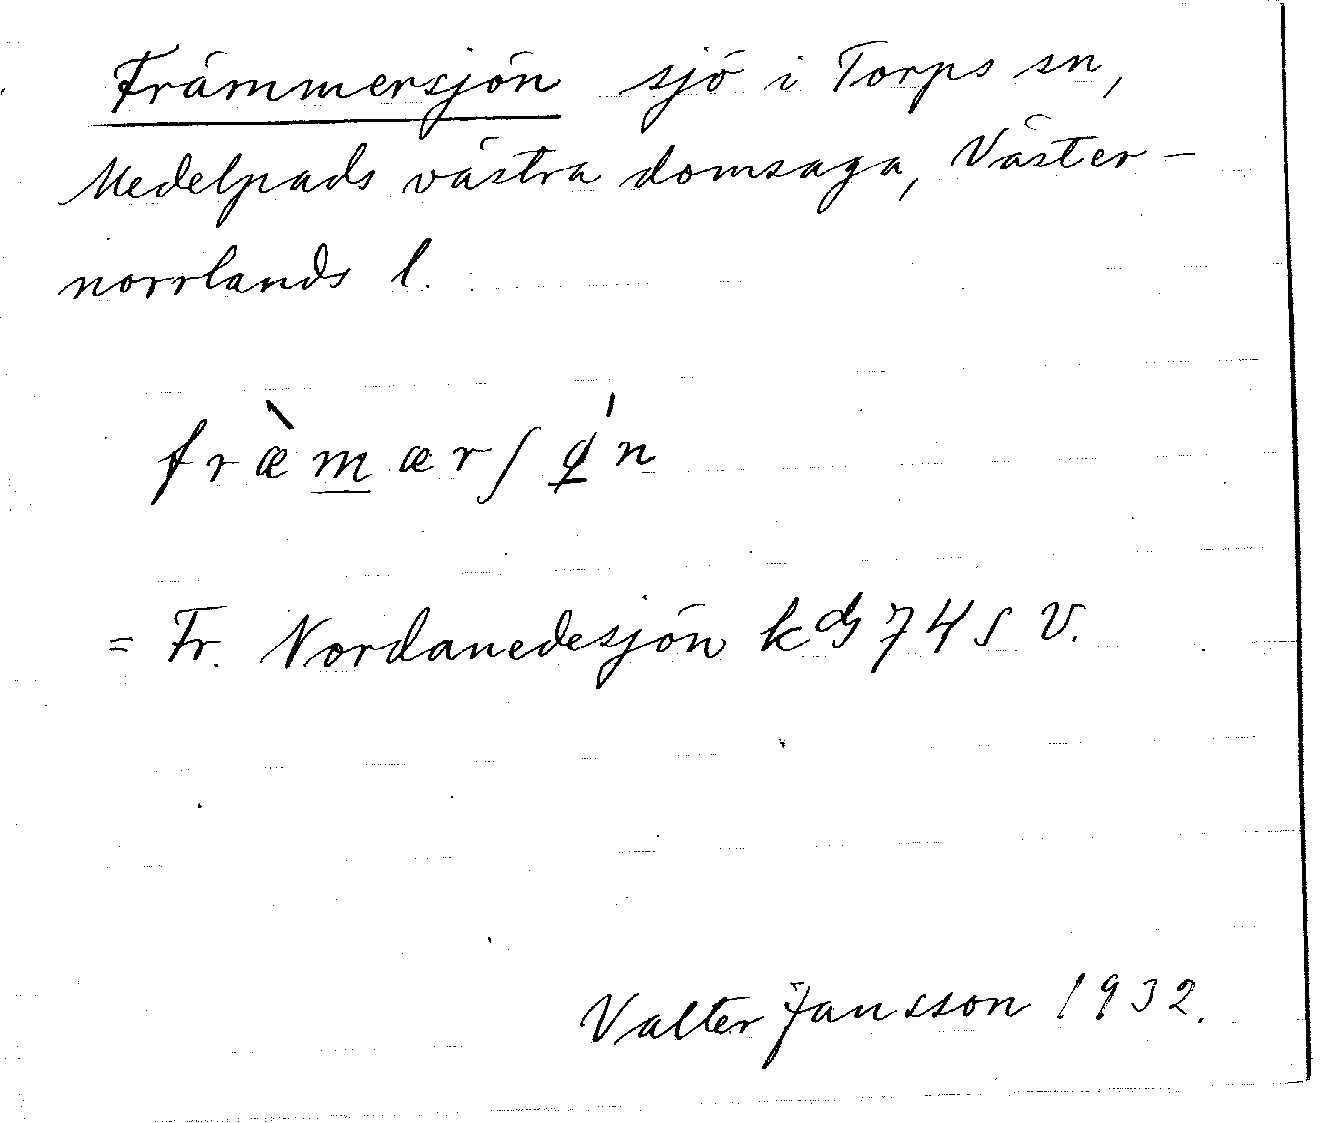 Främmersjön sjö i Torps sn,
Medelpads västra domsaga, Väster-
norrlands l.
fræ̀mærʃǿn
= Fr. Nordanedesjön kbl 74 S V.
Valter Jansson 1932.